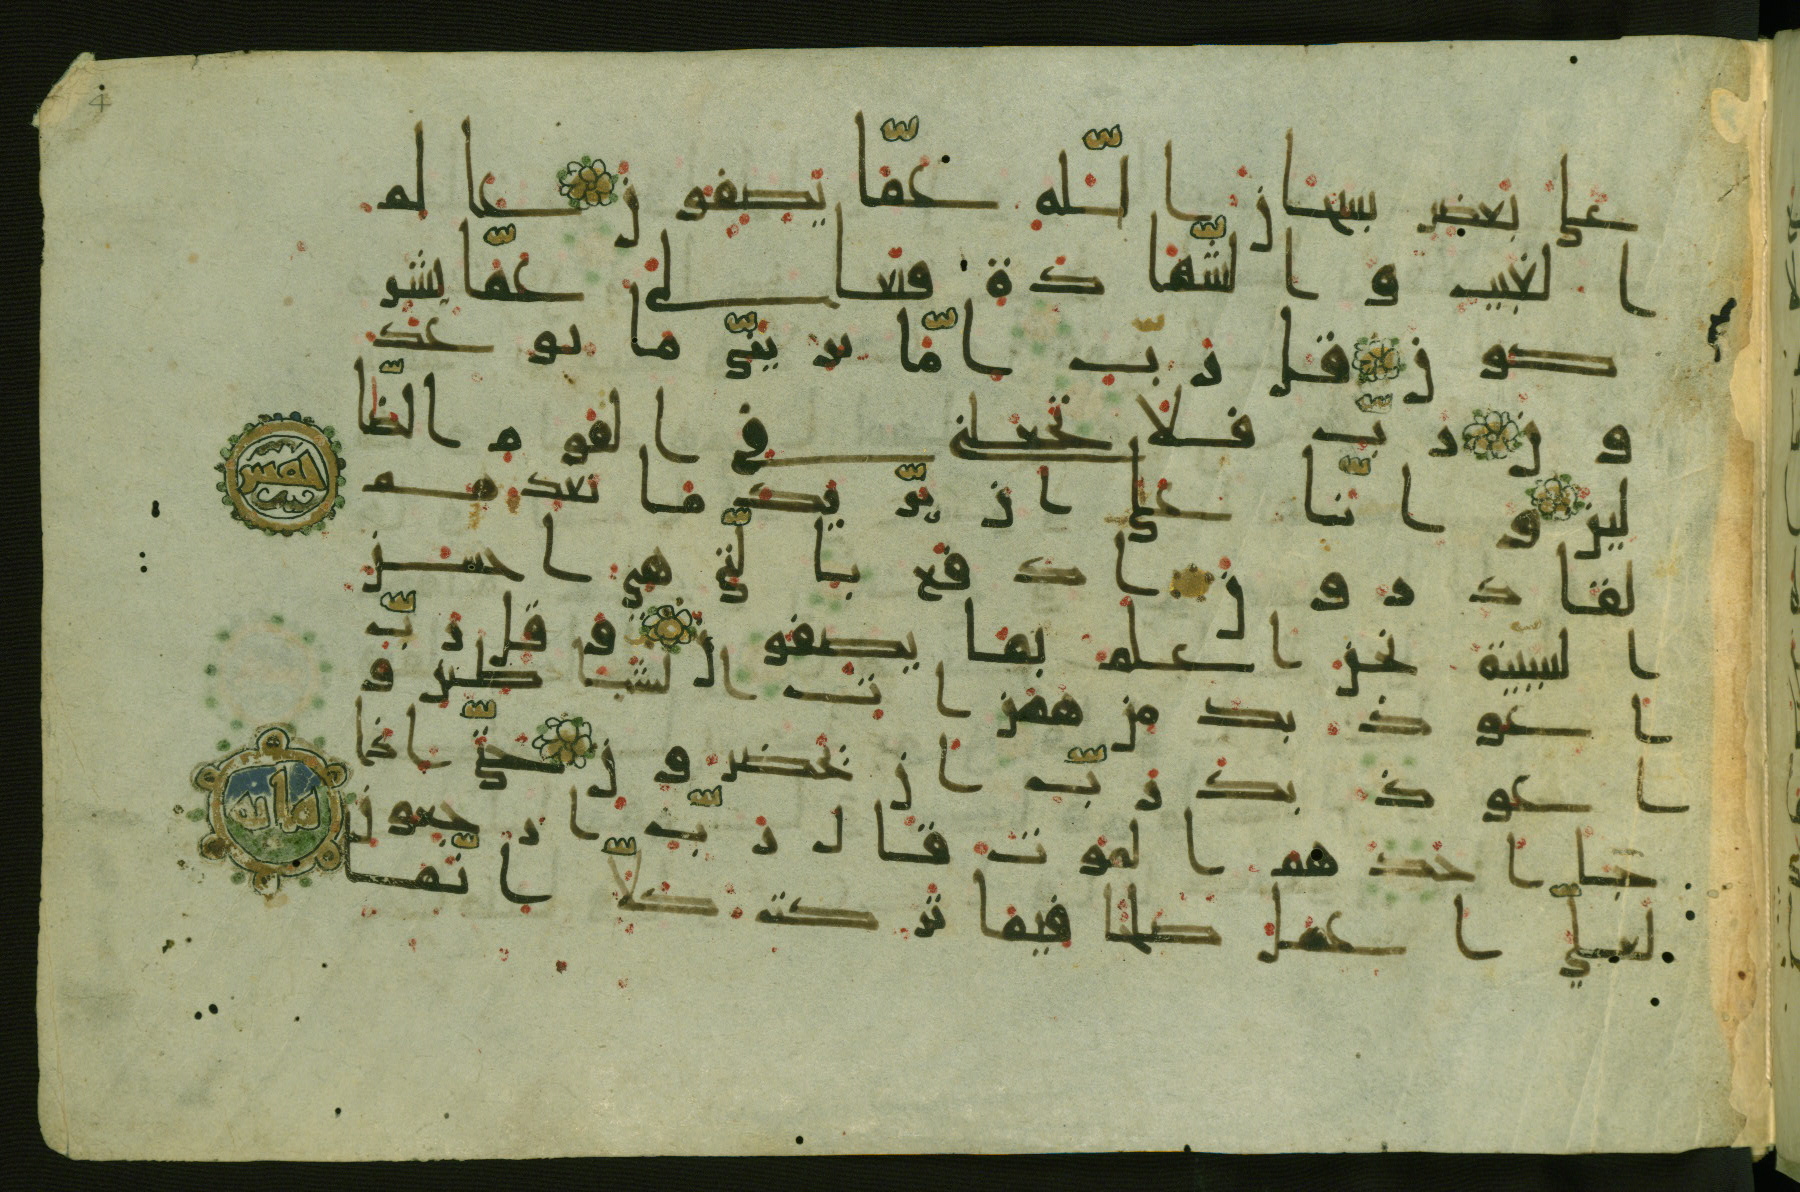 4
على بعض سبحن الله عما يصفون علم
الغيب والشهادة فتعلى عما يشر
كون قل رب اما تريني ما يوعد
ون رب فلا تجعلني في القوم الظا
لمين وانا على ان نريك ما نعدهم
لقادرون ادفع بالتي هي احسن
السيئة نحن اعلم بما يصفون وقل رب
اعوذ بك من همزات الشيطين و
اعوذ بك رب ان يحضرون حتى اذا
جا احدهم الموت قال رب ارجعون
لعلي اعمل صلحا فيما تركت كلا انها
خمس
مايه